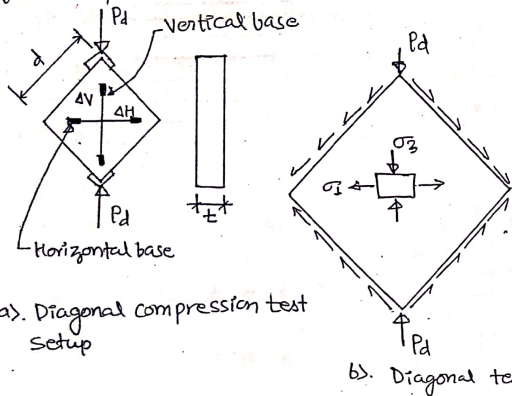 Pd
Vertical base
d
ΔV
ΔH
Pd
t
Horizontal base
a). Diagonal compression test
Setup
Pd
σ3
σ1
Pd
b). Diagonal te